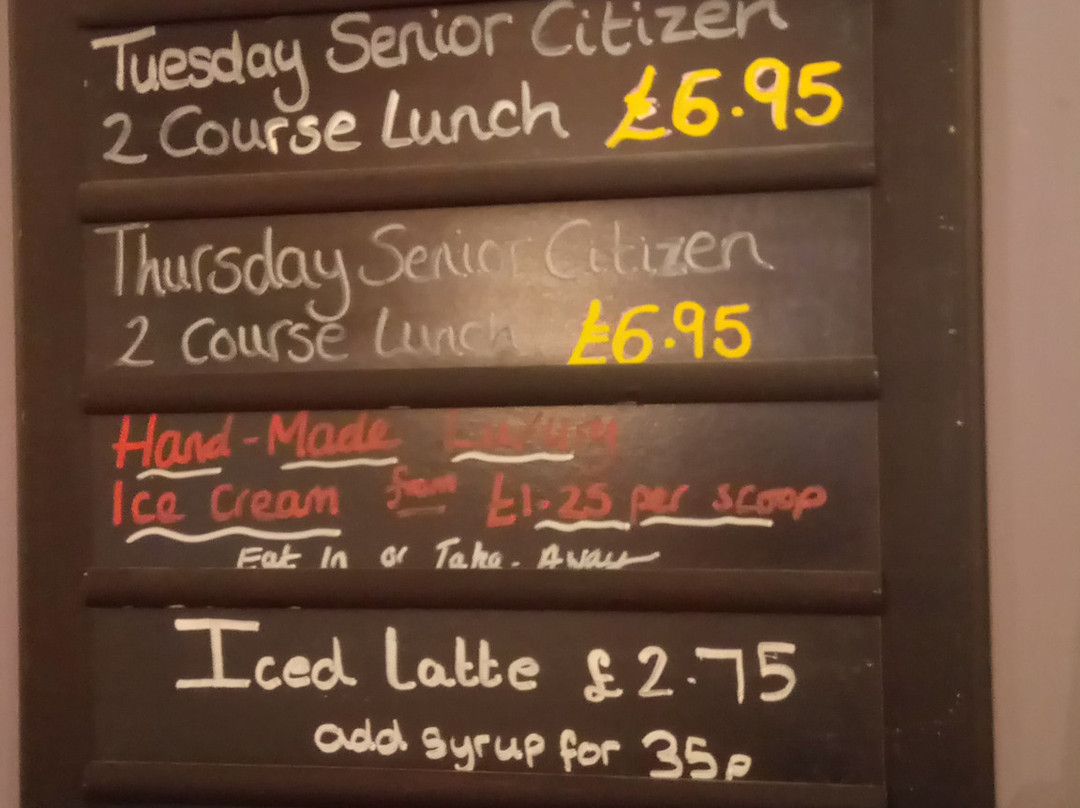 Tuesday Senior Citizen
2 Course Lunch £6.95
Thursday Senior Citizen
2 Course Lunch £6.95
Hand-Made Luxury
Ice Cream from £1.25 per scoop
Eat In or Take-Away
Iced Latte £2.75
add syrup for 35p